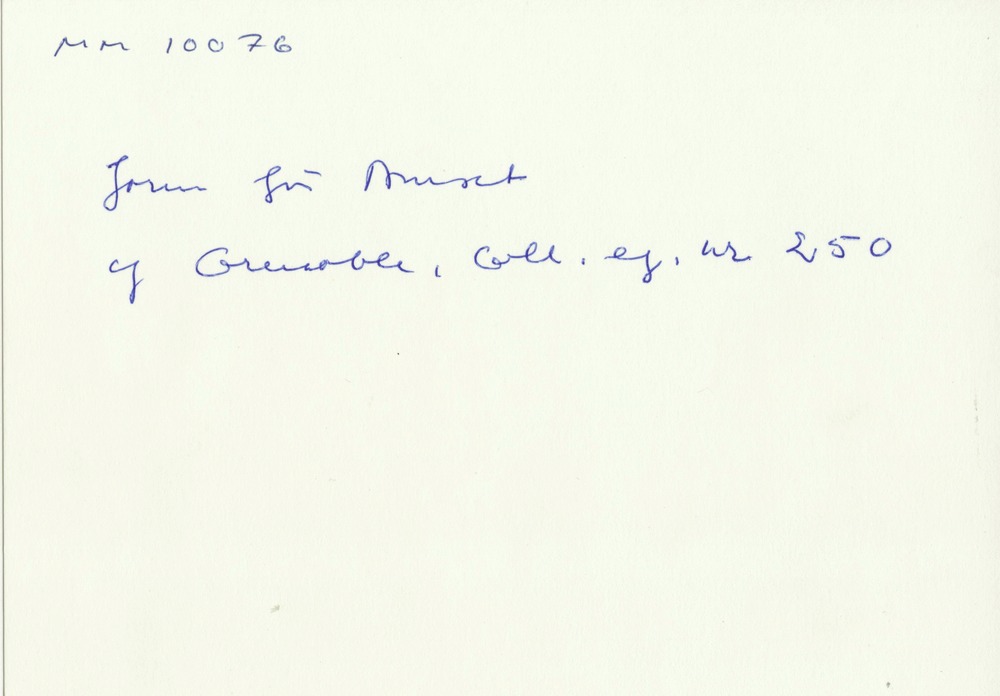 MM 10076
Form för Amulet
cf Grenoble, Coll. eg. nr 250